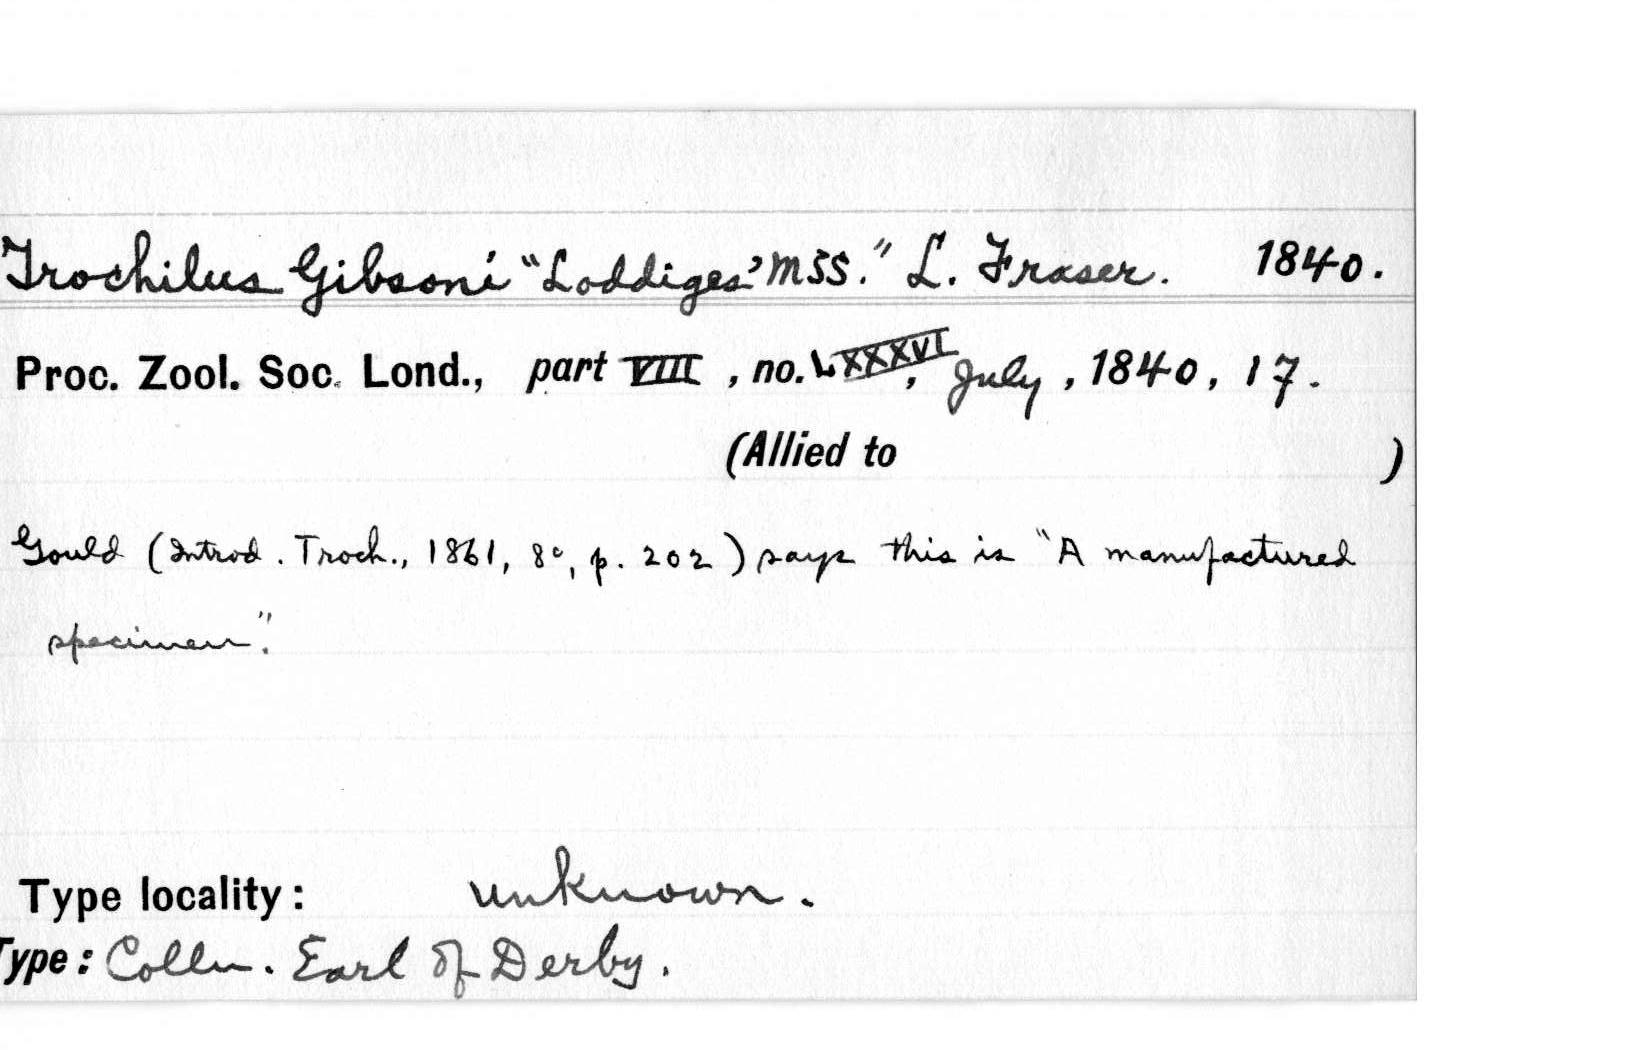 Trochilus Gibsoni "Loddiges' MSS." L. Fraser. 1840.
Proc. Zool. Soc. Lond., part VIII, no. LXXXVI, July, 1840, 17.
(Allied to )
Gould (Introd. Troch., 1861, 8°, p. 202) says this is "A manufactured
specimen".
Type locality: unknown.
Type: Colln. Earl of Derby.